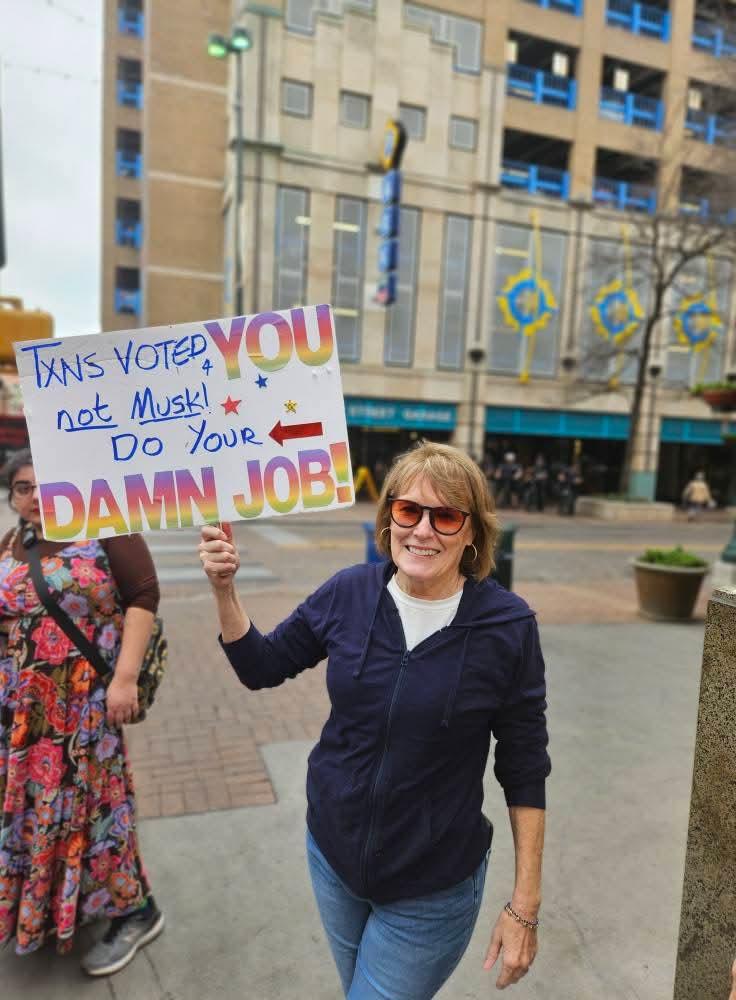 TXNS VOTED 4 YOU
not Musk!
Do Your
DAMN JOB!
STREET GARAGE